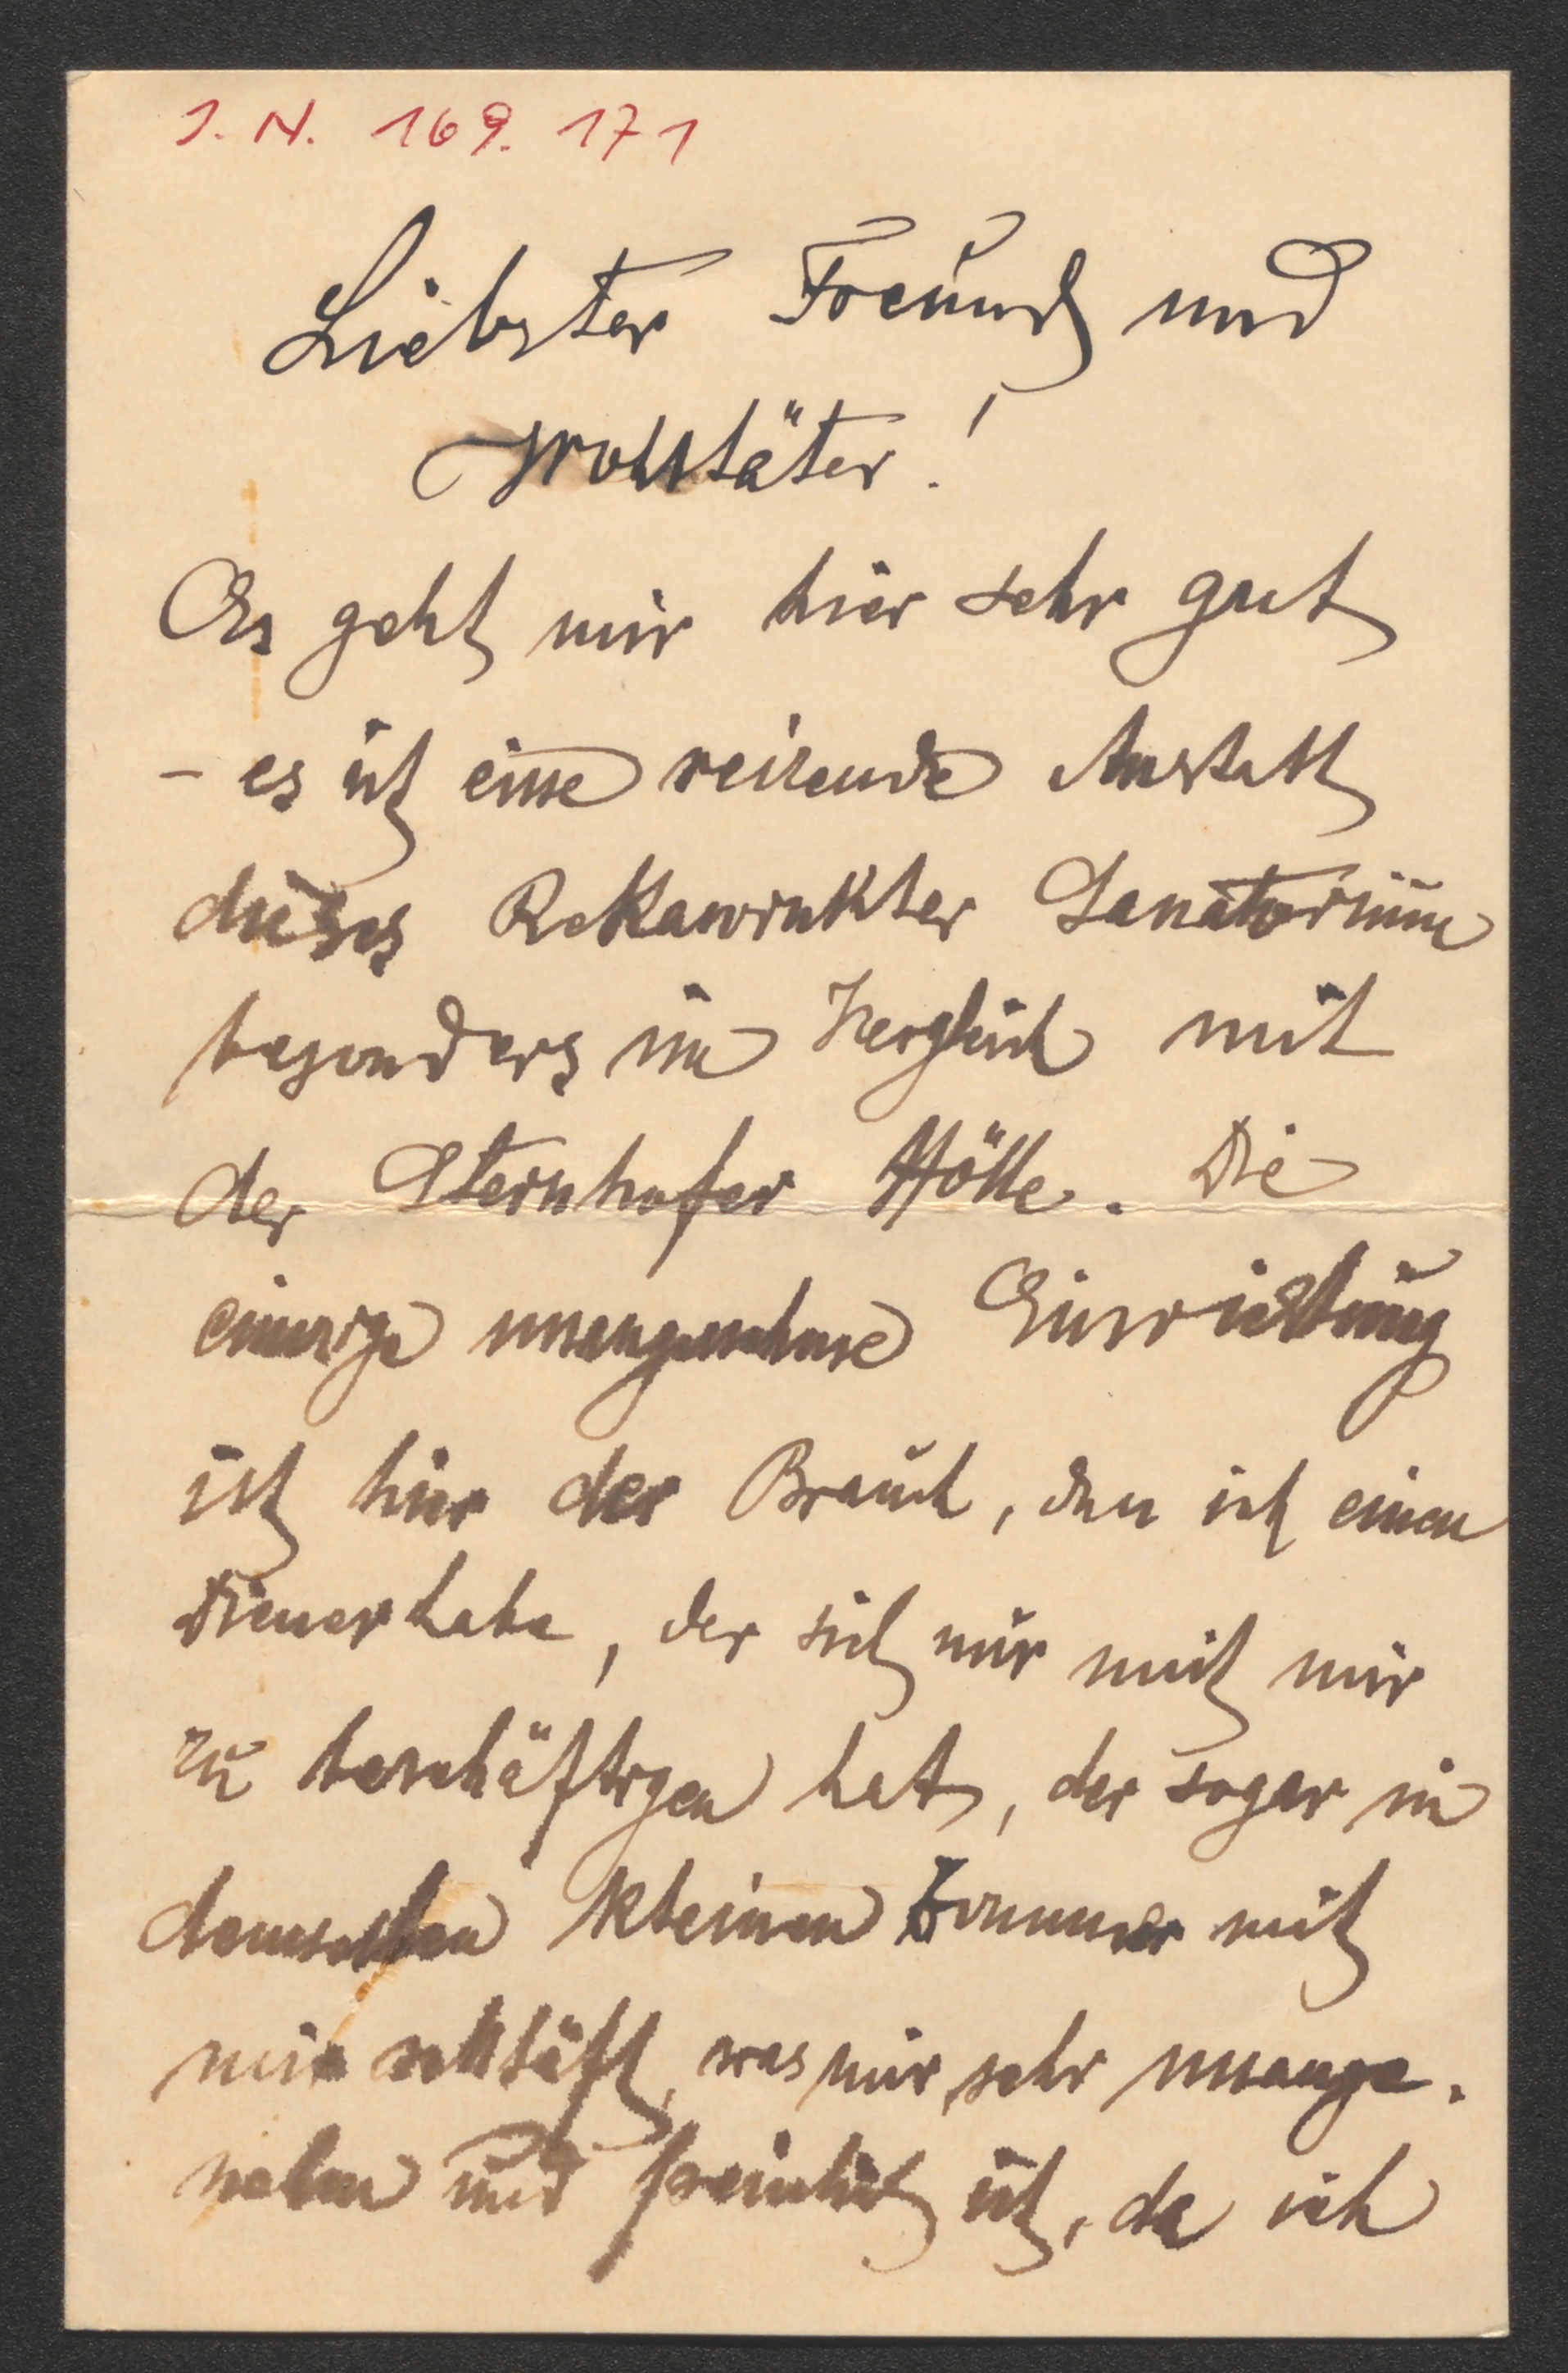 I. N. 169. 171
Liebster Freund und
Wohltäter!
Es geht mir hier sehr gut
– es ist eine reizende Anstalt
dieses Rekawinkler Sanatorium
besonders im Vergleich mit
der Sternhofer Hölle. Die
einzige unangenehme Einrichtung
ist hier der Brauch, den ich einen
Diener habe, der sich nur mit mir
zu beschäftigen hat, der sogar in
demselben kleinen Zimmer mit
mir schläft, was mir sehr unange-
nehm und peinlich ist, da ich